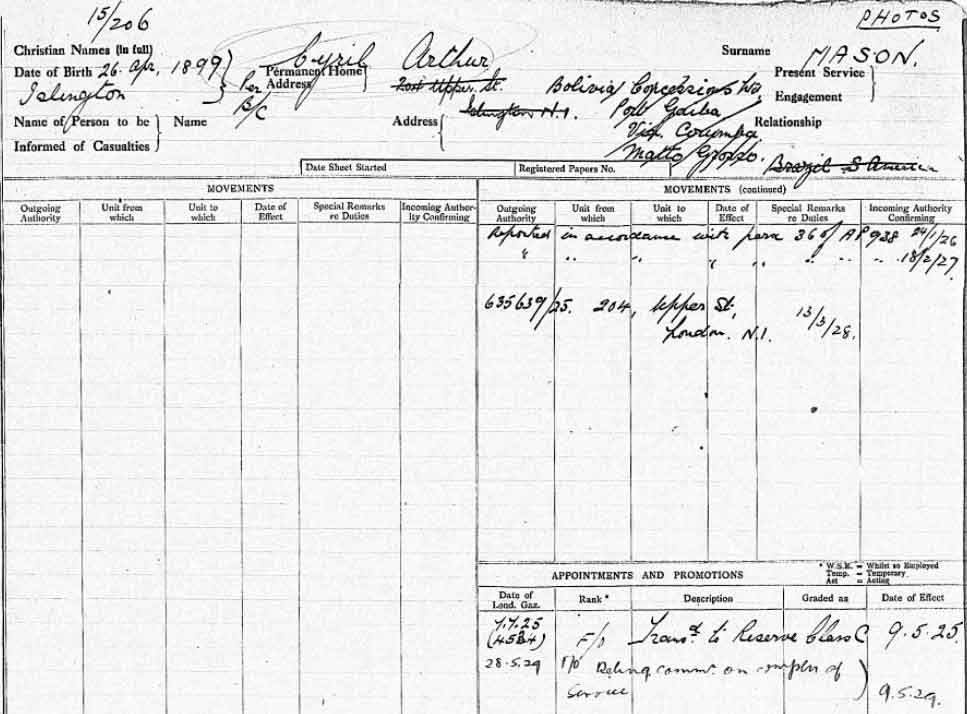 15/206
PHOTOS
Christian Names (in full) Cyril Arthur Surname MASON.
Date of Birth 26 Apr, 1899 Permanent Home Address Upper St. Bolivia Concessions Present Service
Islington Per B/C Islington N.1. Port Gaiba Engagement
Name of Person to be Name Address Via Corumba Relationship
Informed of Casualties Matto Grosso. Brazil S America
Date Sheet Started Registered Papers No.
MOVEMENTS MOVEMENTS (continued)
Outgoing Authority Unit from which Unit to which Date of Effect Special Remarks re Duties Incoming Authority Confirming Outgoing Authority Unit from which Unit to which Date of Effect Special Remarks re Duties Incoming Authority Confirming
Reported in accordance with para 36 of AP 938 /1/26
" " " " " " " " 18/2/27.
635639/25. 204, Upper St,
London. N.1. 13/3/28.
* W.S.E. = Whilst so Employed
Temp. = Temporary
Act = Acting
APPOINTMENTS AND PROMOTIONS
Date of Lond. Gaz. Rank * Description Graded as Date of Effect
7.7.25
F/O Transd to Reserve Class C 9.5.25.
28.5.29 F/O Relinq commn. on compln of
Service 9.5.29.